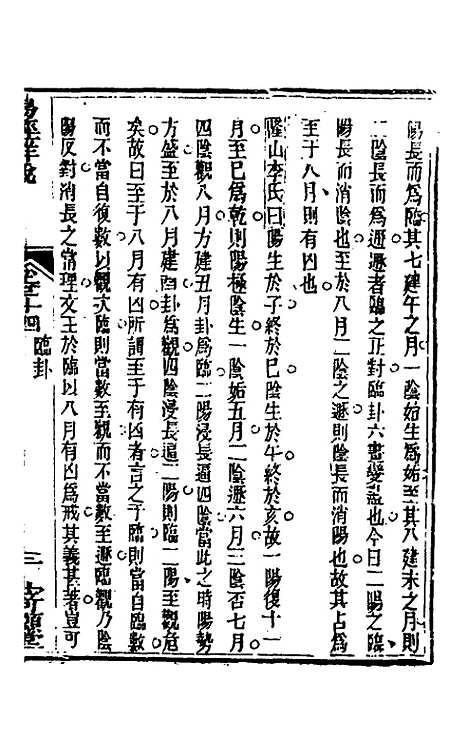 陽長而爲臨其七建午之月一陰始生爲姤至其八建未之月則
二陰長而爲遯遯者臨之正對臨卦六畫變盡也今日二陽之臨
陽長而消陰也至於八月二陰之遯則陰長而消陽也故其占爲
至于八月則有凶也
隆山李氏曰陽生於子終於巳陰生於午終於亥故一陽復十一
月至巳爲乾則陽極陰生一陰姤五月二陰遯六月三陰否七月
四陰觀八月方建丑月卦爲臨二陽浸長逼四陰當此之時陽勢
方盛至於八月建酉卦爲觀四陰浸長逼二陽則臨二陽至觀危
矣故曰至于八月有凶所謂至于有凶者言之于臨則當自臨數
而不當自復數以觀次臨則當數至觀而不當數至遯臨觀乃陰
陽反對消長之常理文王於臨以八月有凶爲戒其義甚著豈可
臨卦
三